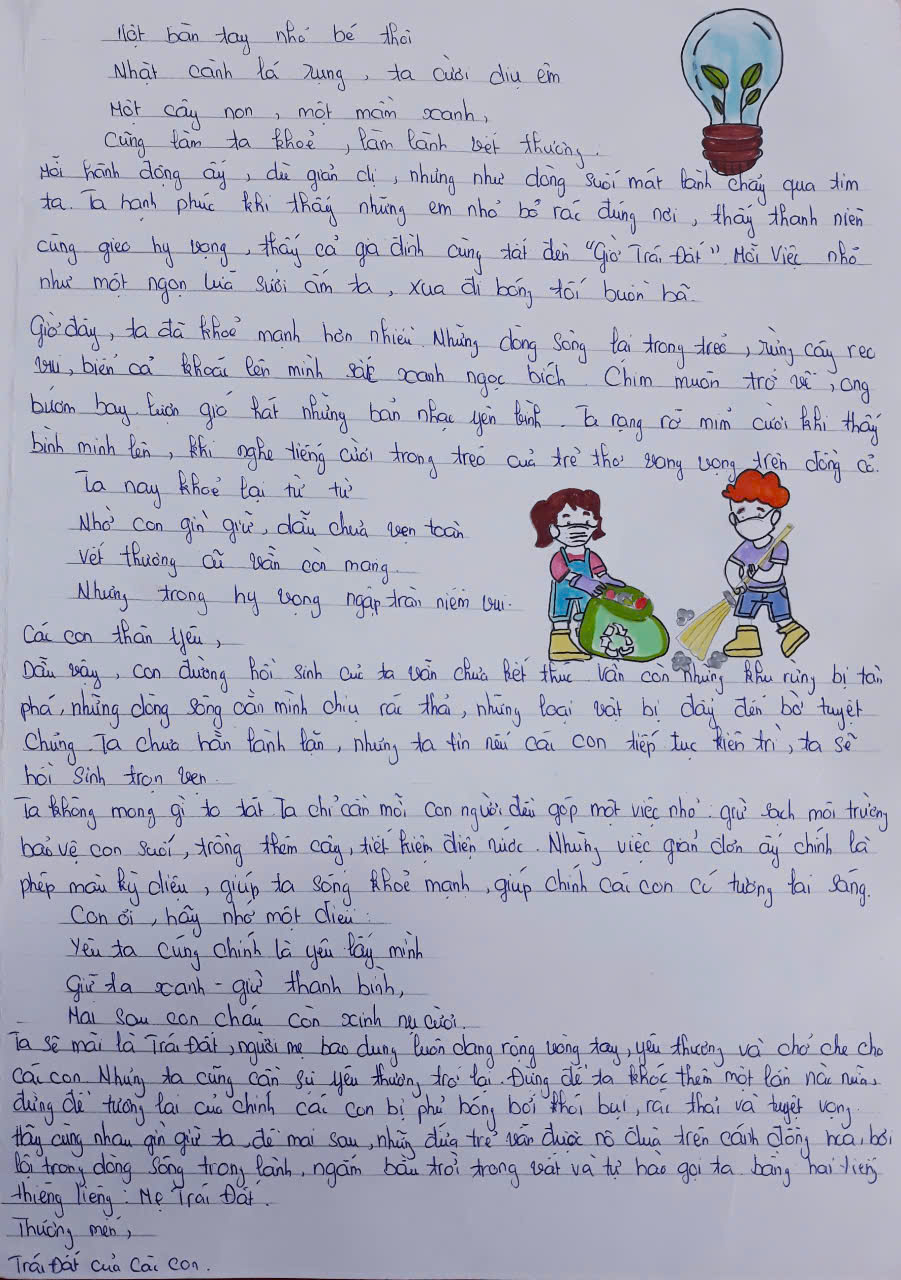 Một bàn tay nhỏ bé thôi
Nhặt cành lá rụng, ta cười dịu êm
Một cây non, một mầm xanh,
Cũng làm ta khoẻ, làm lành vết thương.
Mỗi hành động ấy, dù giản dị, nhưng như dòng suối mát lành chảy qua tim
ta. Ta hạnh phúc khi thấy những em nhỏ bỏ rác đúng nơi, thấy thanh niên
cùng gieo hy vọng, thấy cả gia đình cùng tắt đèn "Giờ Trái Đất" Mỗi Việc nhỏ
như một ngọn lửa sưởi ấm ta, xua đi bóng tối buồn bã.
Giờ đây, ta đã khoẻ mạnh hơn nhiều. Những dòng sông lại trong trẻo, rừng cây reo
vui, biển cả khoác lên mình sắc xanh ngọc bích. Chim muôn trở về, ong
bướm bay lượn gió hát những bản nhạc yên bình. Ta rạng rỡ mỉm cười khi thấy
bình minh lên, khi nghe tiếng cười trong trẻo của trẻ thơ vang vọng trên đồng cỏ.
Ta nay khoẻ lại từ từ
Nhờ con gìn giữ, dẫu chưa vẹn toàn
Vết thương cũ vẫn còn mang
Nhưng trong hy vọng ngập tràn niềm vui.
Các con thân yêu,
Dẫu vậy, con đường hồi sinh của ta vẫn chưa kết thúc. Vẫn còn những khu rừng bị tàn
phá, những dòng sông oằn mình chịu rác thải, những loài vật bị đẩy đến bờ tuyệt
Chủng. Ta chưa hẳn lành lặn, nhưng ta tin nếu các con tiếp tục kiên trì, ta sẽ
hồi sinh trọn vẹn.
Ta không mong gì to tát. Ta chỉ cần mỗi con người đều góp một việc nhỏ: giữ sạch môi trường
bảo vệ con suối, trồng thêm cây, tiết kiệm điện nước. Những việc giản đơn ấy chính là
phép màu kỳ diệu, giúp ta sống khoẻ mạnh, giúp chính các con có tương lai sáng.
Con ơi, hãy nhớ một điều:
Yêu ta cũng chính là yêu lấy mình
Giữ ta xanh - giữ thanh bình,
Mai sau con cháu còn xinh nụ cười.
Ta sẽ mãi là Trái Đất, người mẹ bao dung luôn dang rộng vòng tay, yêu thương và chở che cho
các con. Nhưng ta cũng cần sự yêu thương trở lại. Đừng để ta khóc thêm một lần nào nữa,
đừng để tương lai của chính các con bị phủ bóng bởi khói bụi, rác thải và tuyệt vọng.
Hãy cùng nhau gìn giữ ta, để mai sau, những đứa trẻ vẫn được nô đùa trên cánh đồng hoa, bơi
lội trong dòng sông trong lành, ngắm bầu trời trong vắt và tự hào gọi ta bằng hai tiếng
thiêng liêng: Mẹ Trái Đất.
Thương mến,
Trái Đất của Các Con.